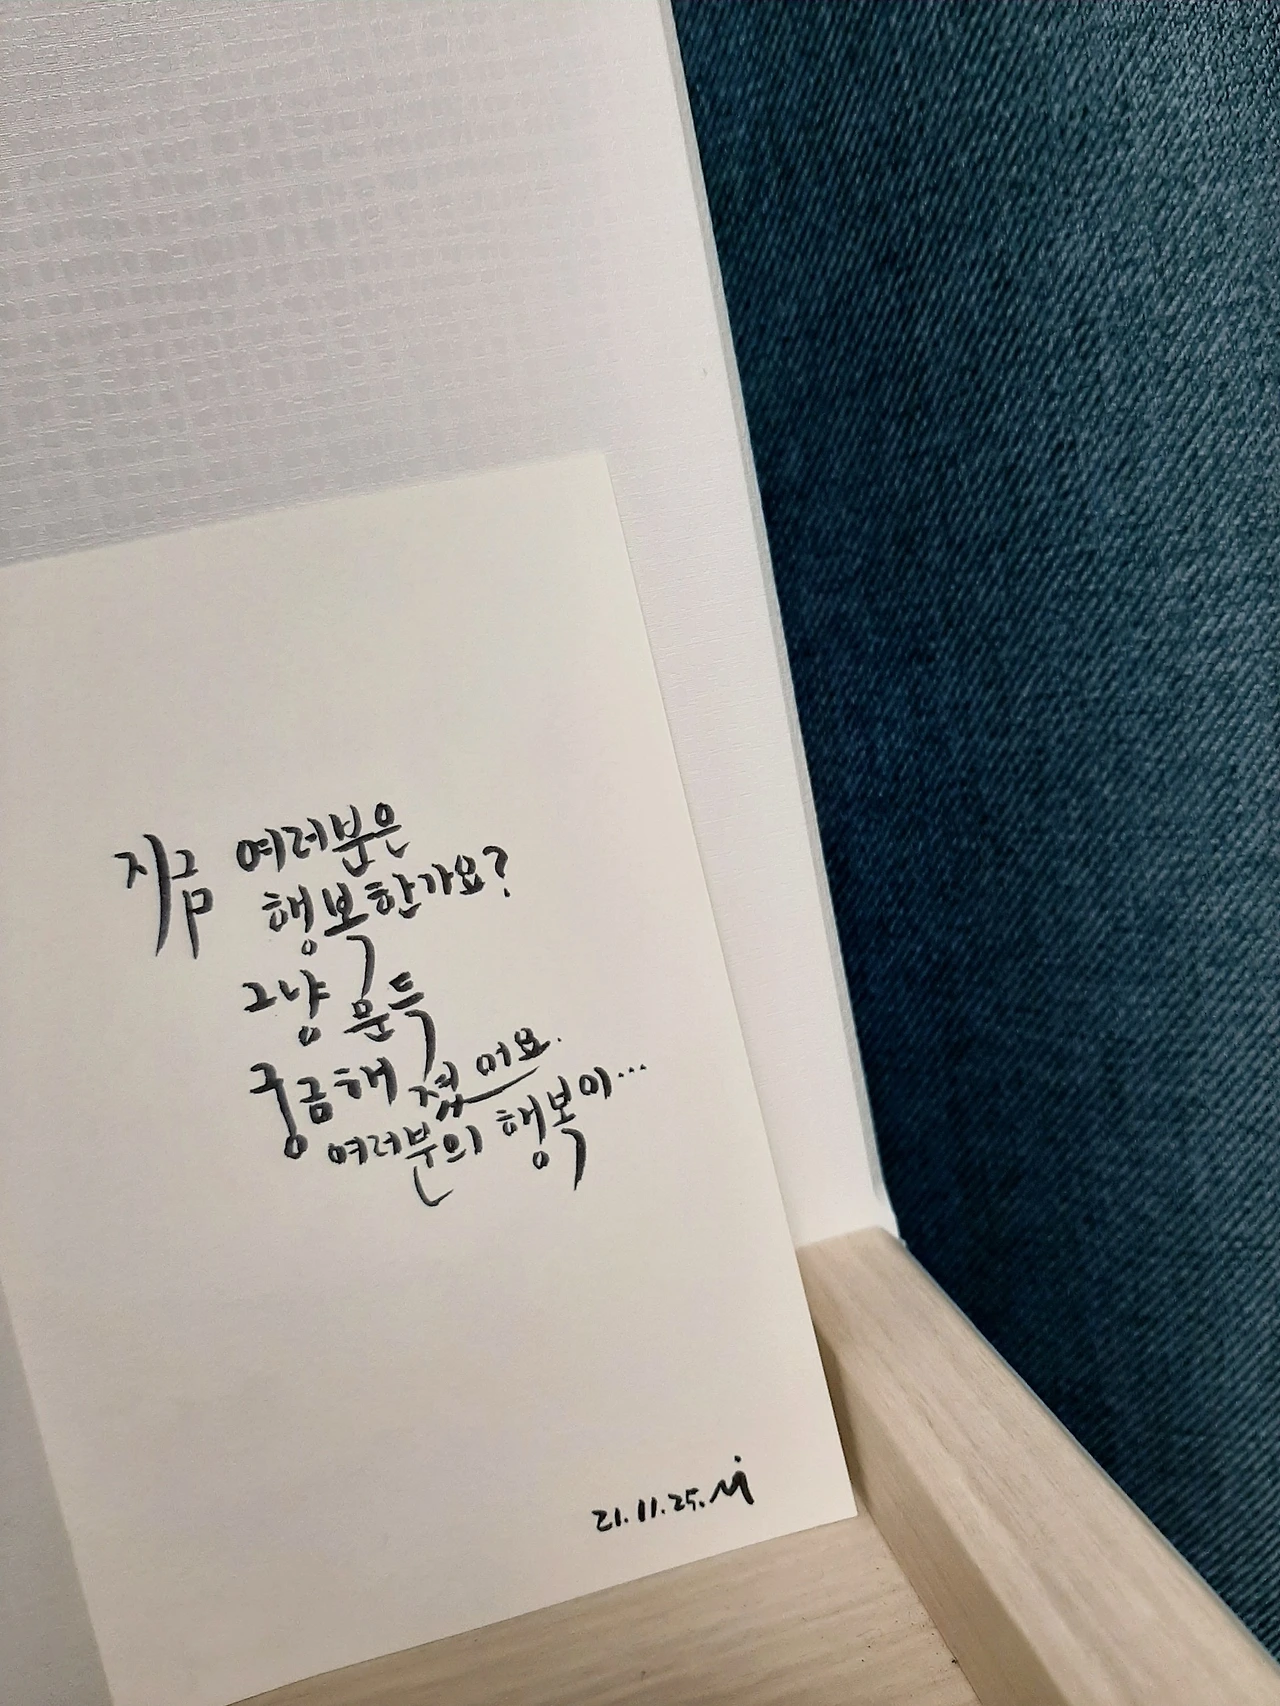 지금 여러분은
행복한가요?
그냥 문득
궁금해졌어요.
여러분의 행복이...
21.11.25.